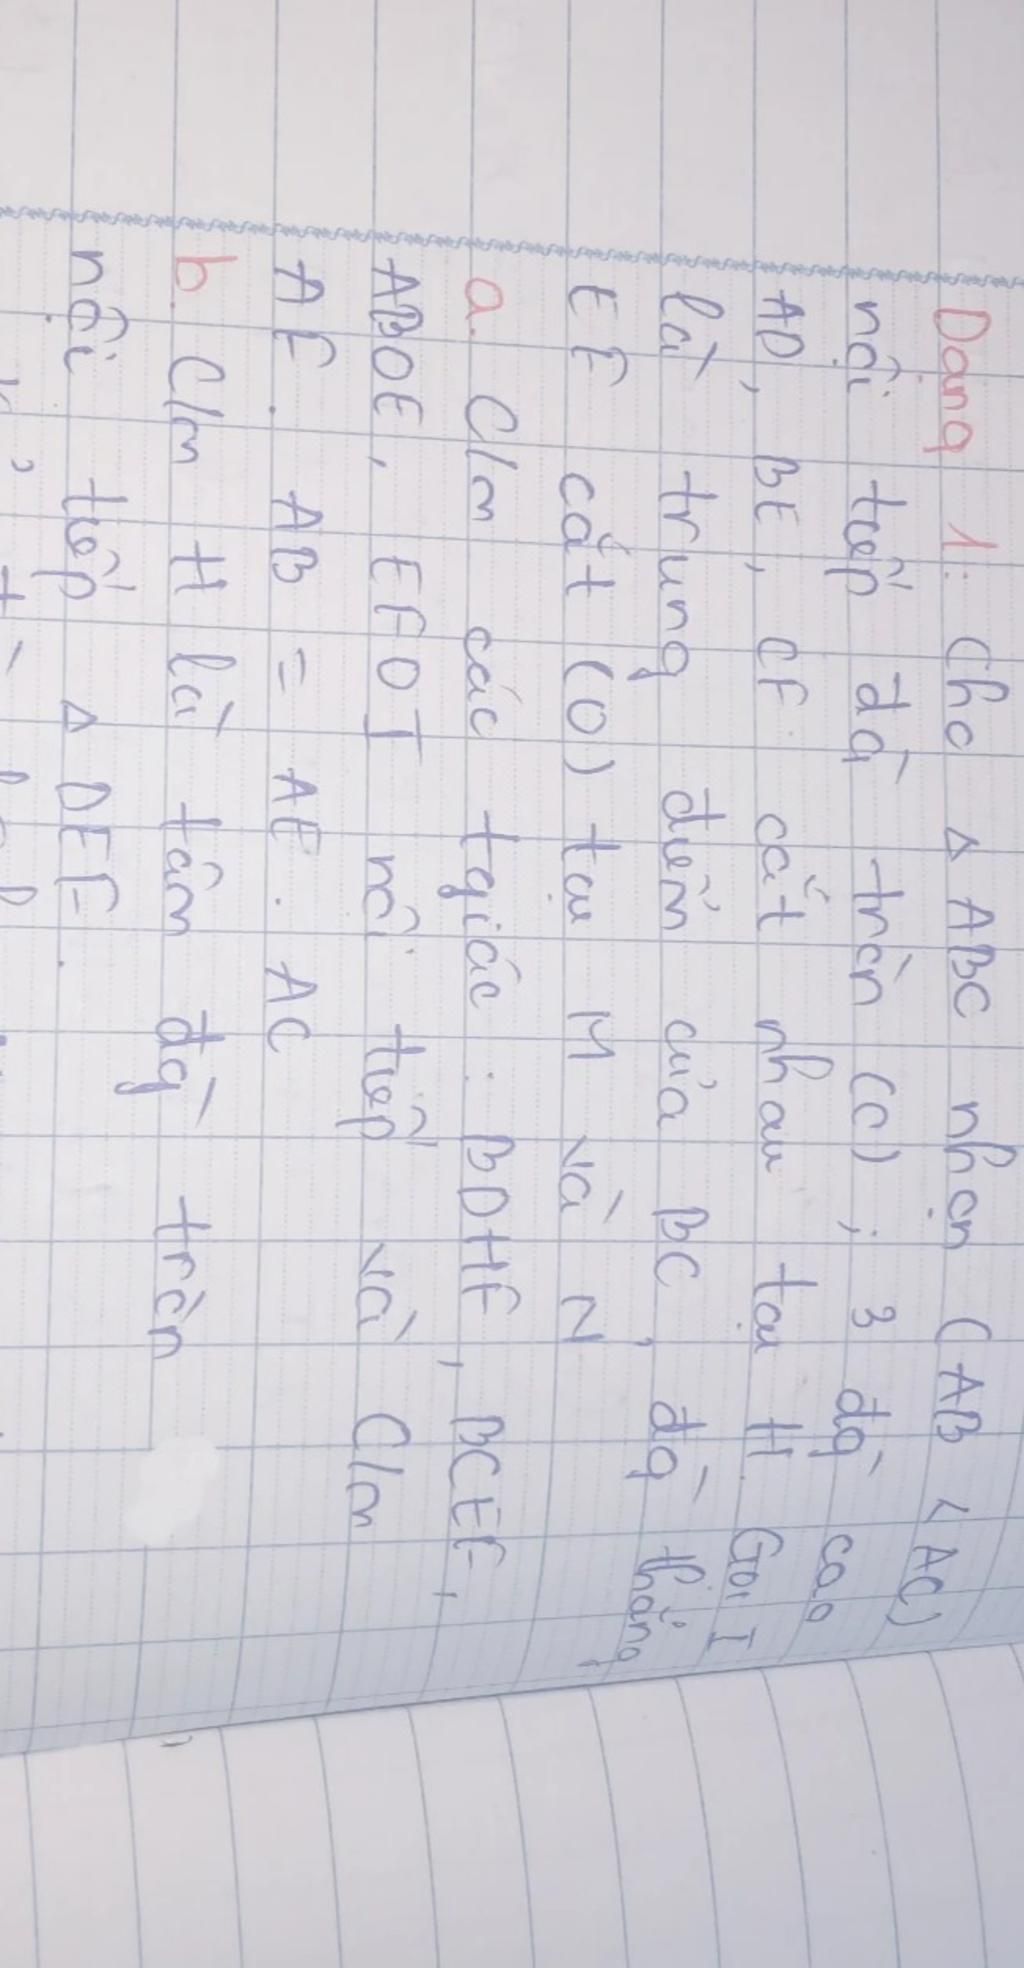 Dạng 1: Cho Δ ABC nhọn (AB < AC)
nội tiếp đg` tròn (O) ; 3 đg` cao
AD, BE, CF cắt nhau tại H. Gọi I
là trung điểm của BC, đg` thẳng
EF cắt (O) tại M và N
a. C/m các tgiác : BDHF, BCEF,
ABDE, EFDI nội tiếp và C/m
AF. AB = AE. AC
b. C/m H là tâm đg` tròn
nội tiếp Δ DEF.